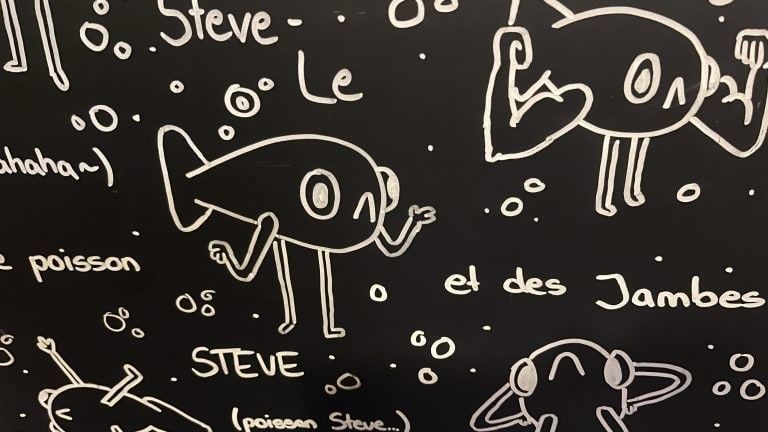 Steve-
Le
ahaha~)
poisson
et des Jambes
STEVE
(poisson Steve...)